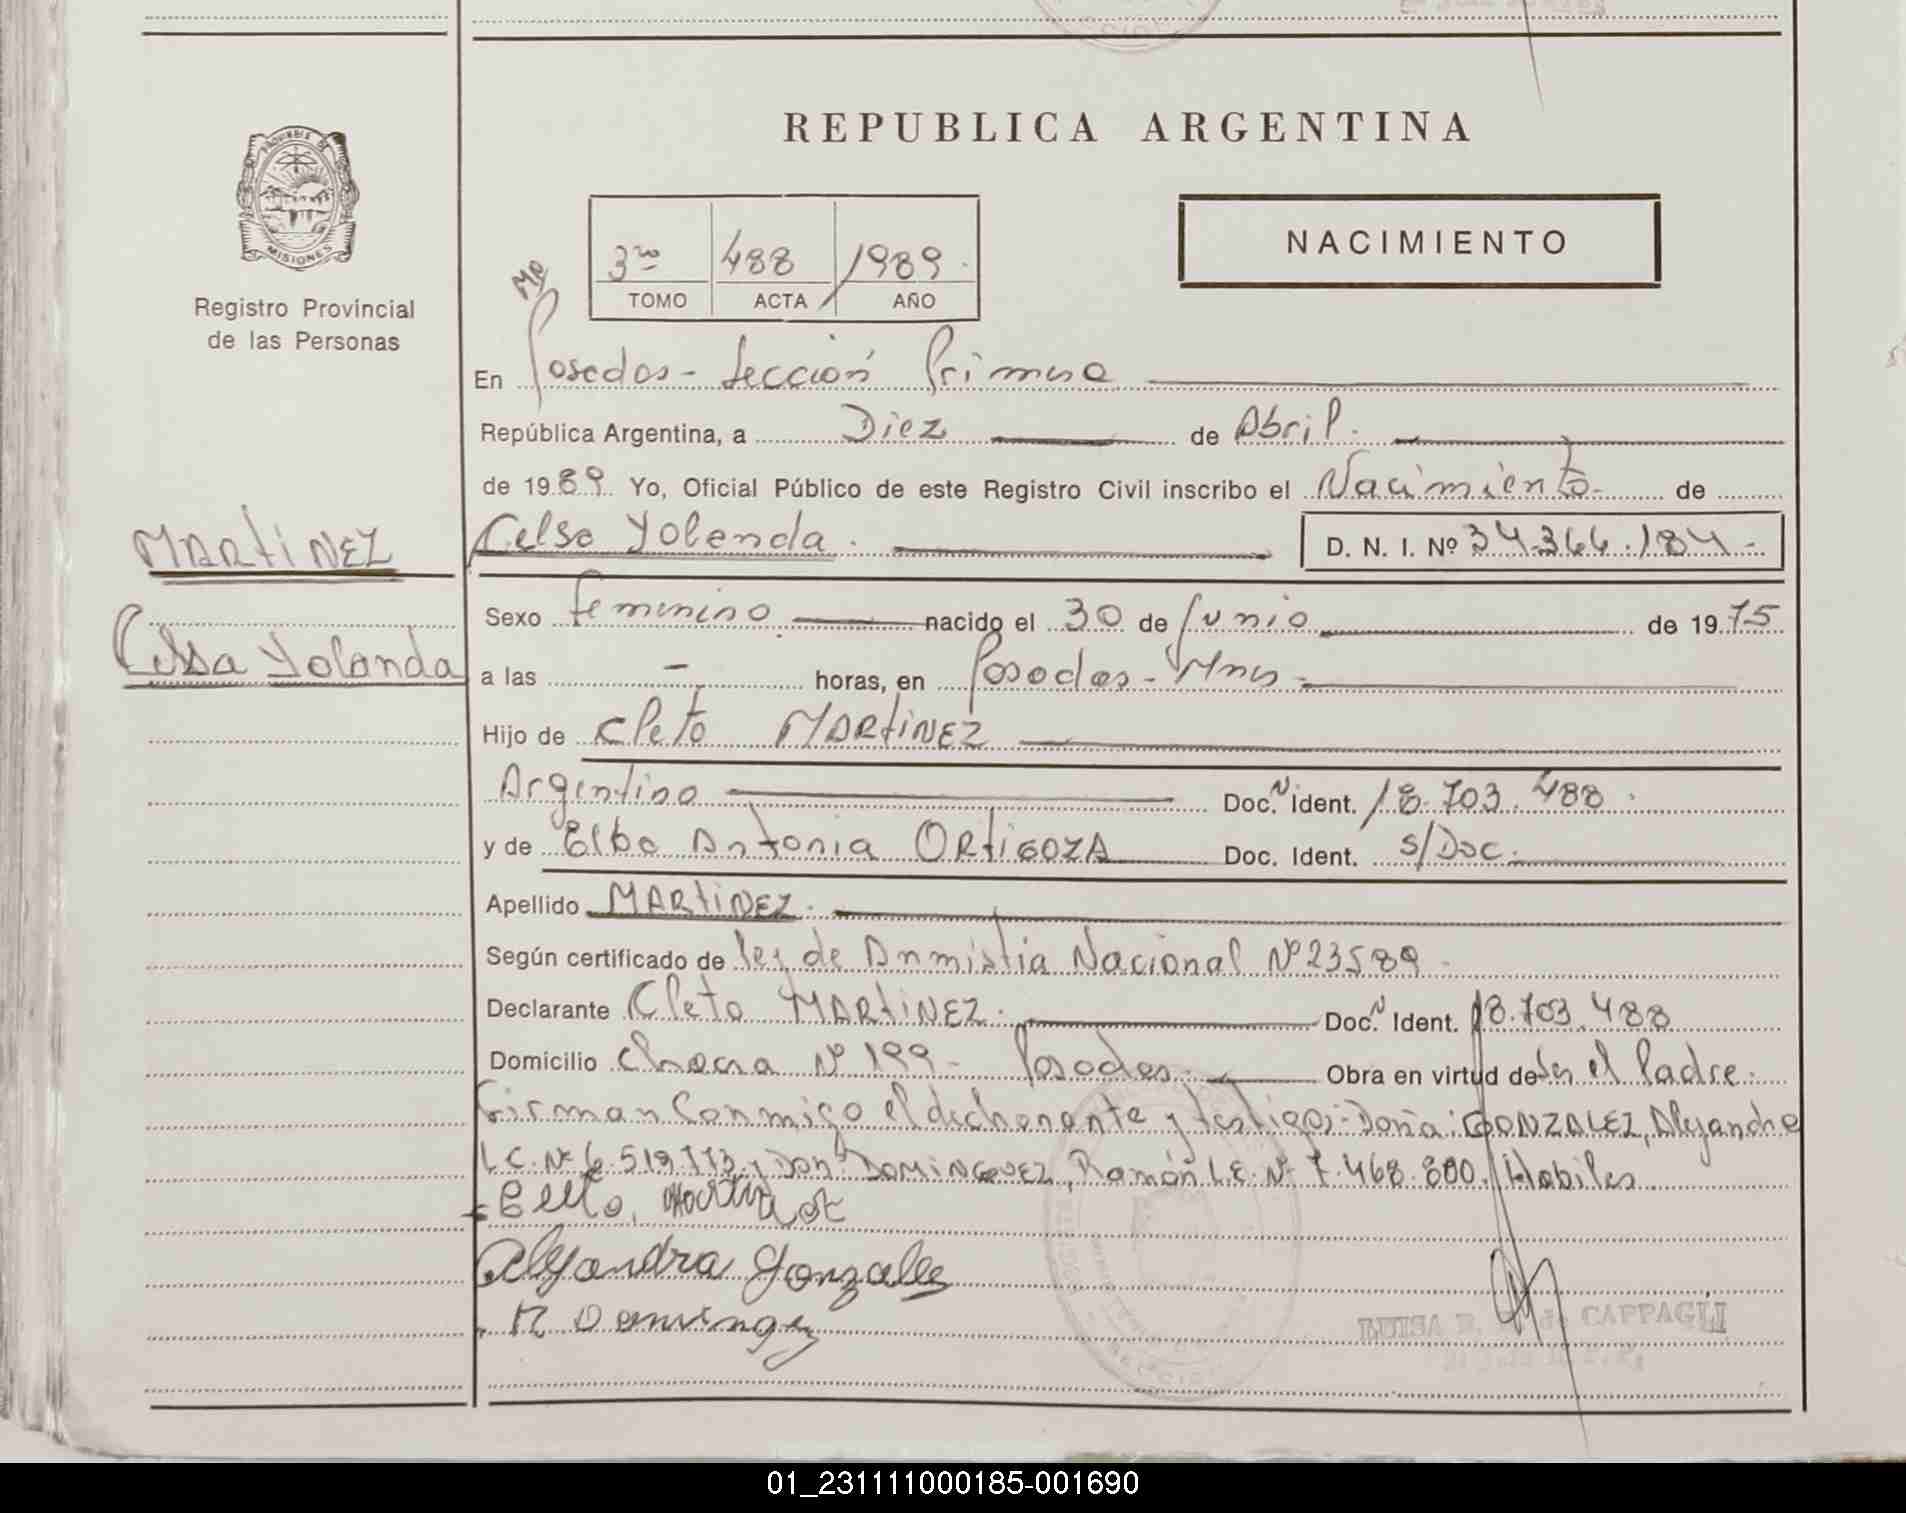 REPUBLICA ARGENTINA
PROVINCIA DE
MISIONES
Registro Provincial
de las Personas
NACIMIENTO
3ro 488 1989
TOMO ACTA AÑO
En Posadas - Sección Primera
República Argentina, a Diez de Abril.
de 1989 Yo, Oficial Público de este Registro Civil inscribo el Nacimiento de
MARTINEZ
Celsa Yolanda
Celsa Yolanda. D. N. I. Nº 34.366.184-
Sexo femenino nacido el 30 de Junio de 1975
a las - horas, en Posadas - Mnes -
Hijo de Cleto MARTINEZ
Argentino Doc. N Ident. 18.703.488.
y de Elba Antonia ORTIGOZA Doc. Ident. s/Doc.
Apellido MARTINEZ.
Según certificado de ley de Anmistia Nacional Nº 23589-
Declarante Cleto MARTINEZ. Doc. N Ident. 18.703.488
Domicilio Chacra Nº 199- Posadas. Obra en virtud de Ser el Padre.
Firman Conmigo el declarante y testigos: Doña: GONZALEZ, Alejandra
L.C. Nº 6.519.773 y Don: DOMINGUEZ, Ramón L.E. Nº 7.468.800. Habiles.
Alejandra Gonzalez
R Dominguez
LUISA de CAPPAGLI
01_231111000185-001690